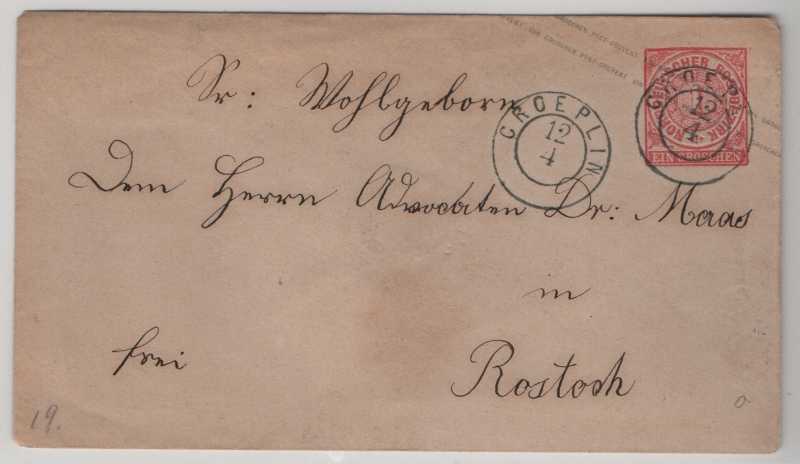 EIN GROSCHEN POST-COUVERT EIN GROSCHEN POST-COUVERT
NORDDEUTSCHER POSTBEZIRK
EIN GROSCHEN
CROEPLIN
12
4
CROEPLIN
12
4
Sr: Wohlgeborn
Dem Herrn Advocaten Dr: Maas
in
frei
Rostock
19.